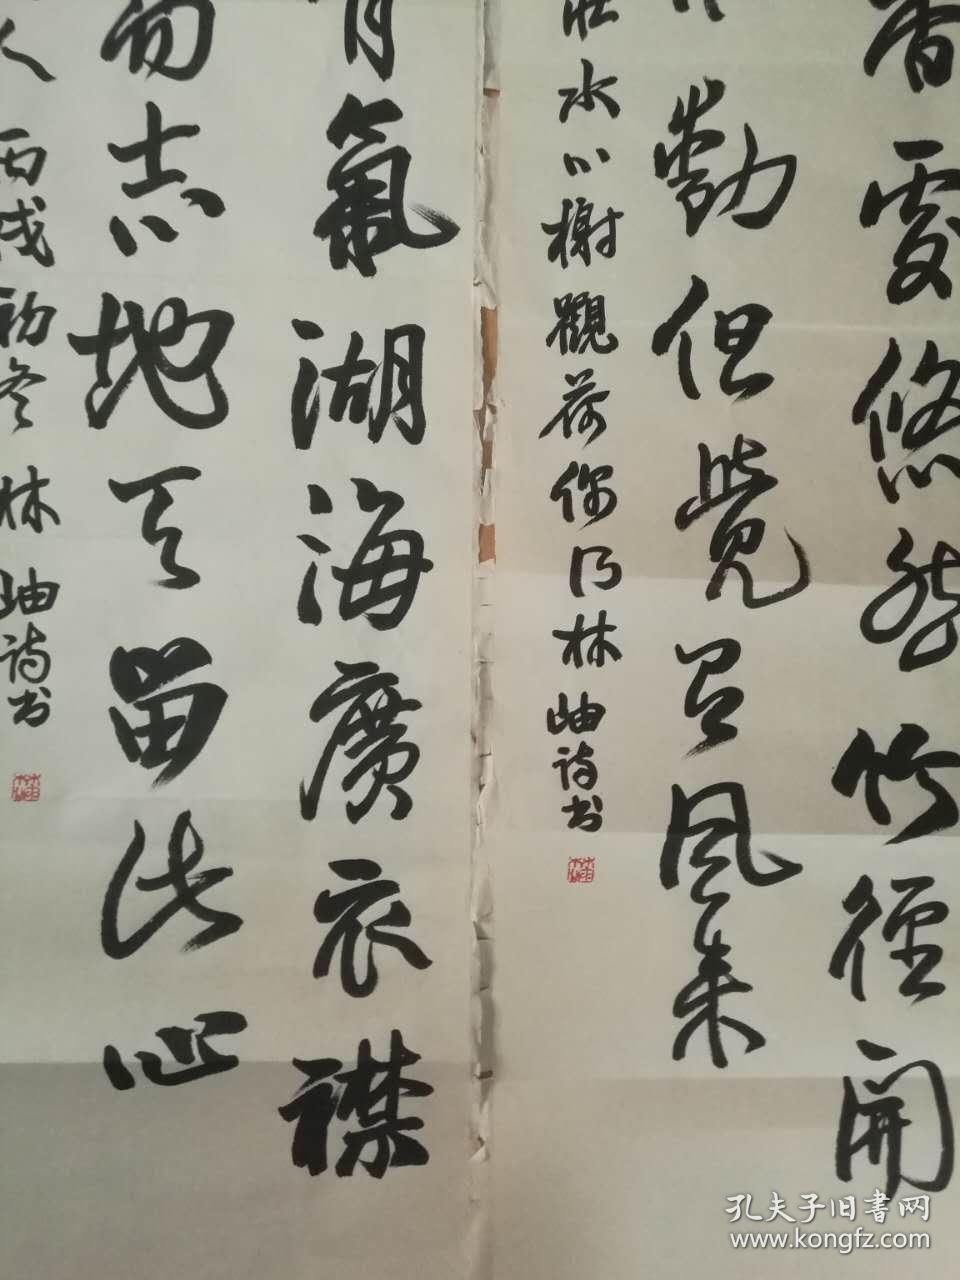 香處悠然竹徑開
動但覺名風來
莊水心榭觀荷作乃林岫詩書
氣湖海廣衣襟
而志地天留此心
人丙戌初冬林岫詩書
孔夫子旧書网
www.kongfz.com